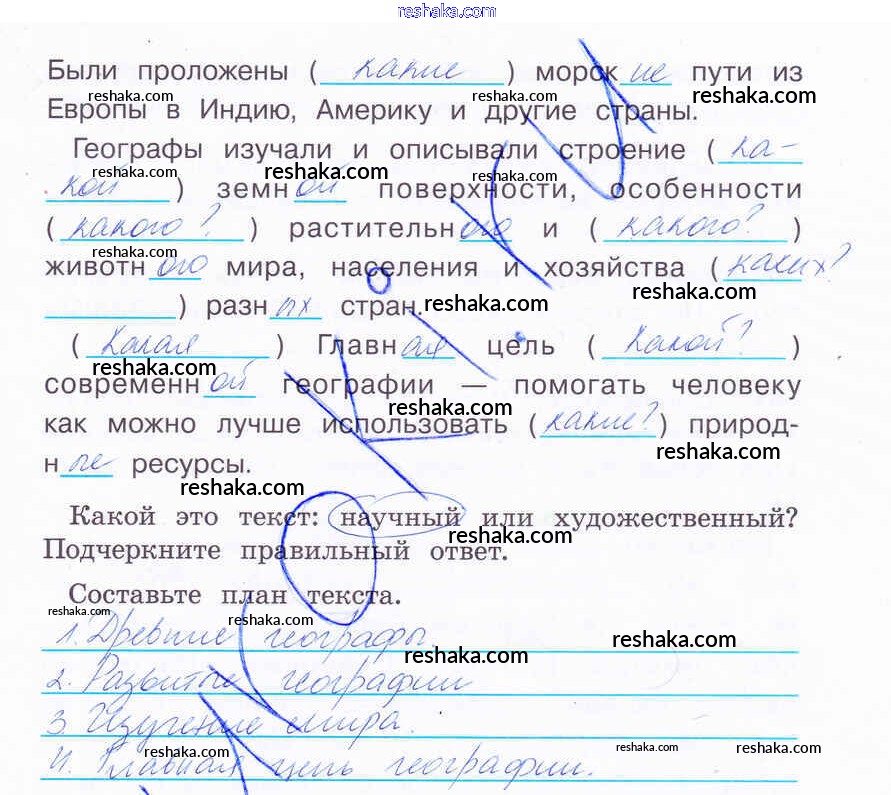 reshaka.com
Были проложены ( какие ) морск ие пути из
reshaka.com reshaka.com reshaka.com
Европы в Индию, Америку и другие страны.
Географы изучали и описывали строение ( ка-
reshaka.com reshaka.com reshaka.com
кой ) земн ой поверхности, особенности
( какого? ) растительн ого и ( какого? )
reshaka.com
животн ого мира, населения и хозяйства ( каких?
reshaka.com
) разн ых стран.
reshaka.com
( Какая ) Главн ая цель ( какой? )
reshaka.com
современн ой географии — помогать человеку
reshaka.com
как можно лучше использовать ( какие? ) природ-
reshaka.com
н ые ресурсы.
reshaka.com
Какой это текст: научный или художественный?
reshaka.com
Подчеркните правильный ответ.
Составьте план текста.
reshaka.com
reshaka.com
1. Древние географы.
reshaka.com
reshaka.com
2. Развитие географии
3. Изучение мира.
reshaka.com reshaka.com reshaka.com
4. Главная цель географии.